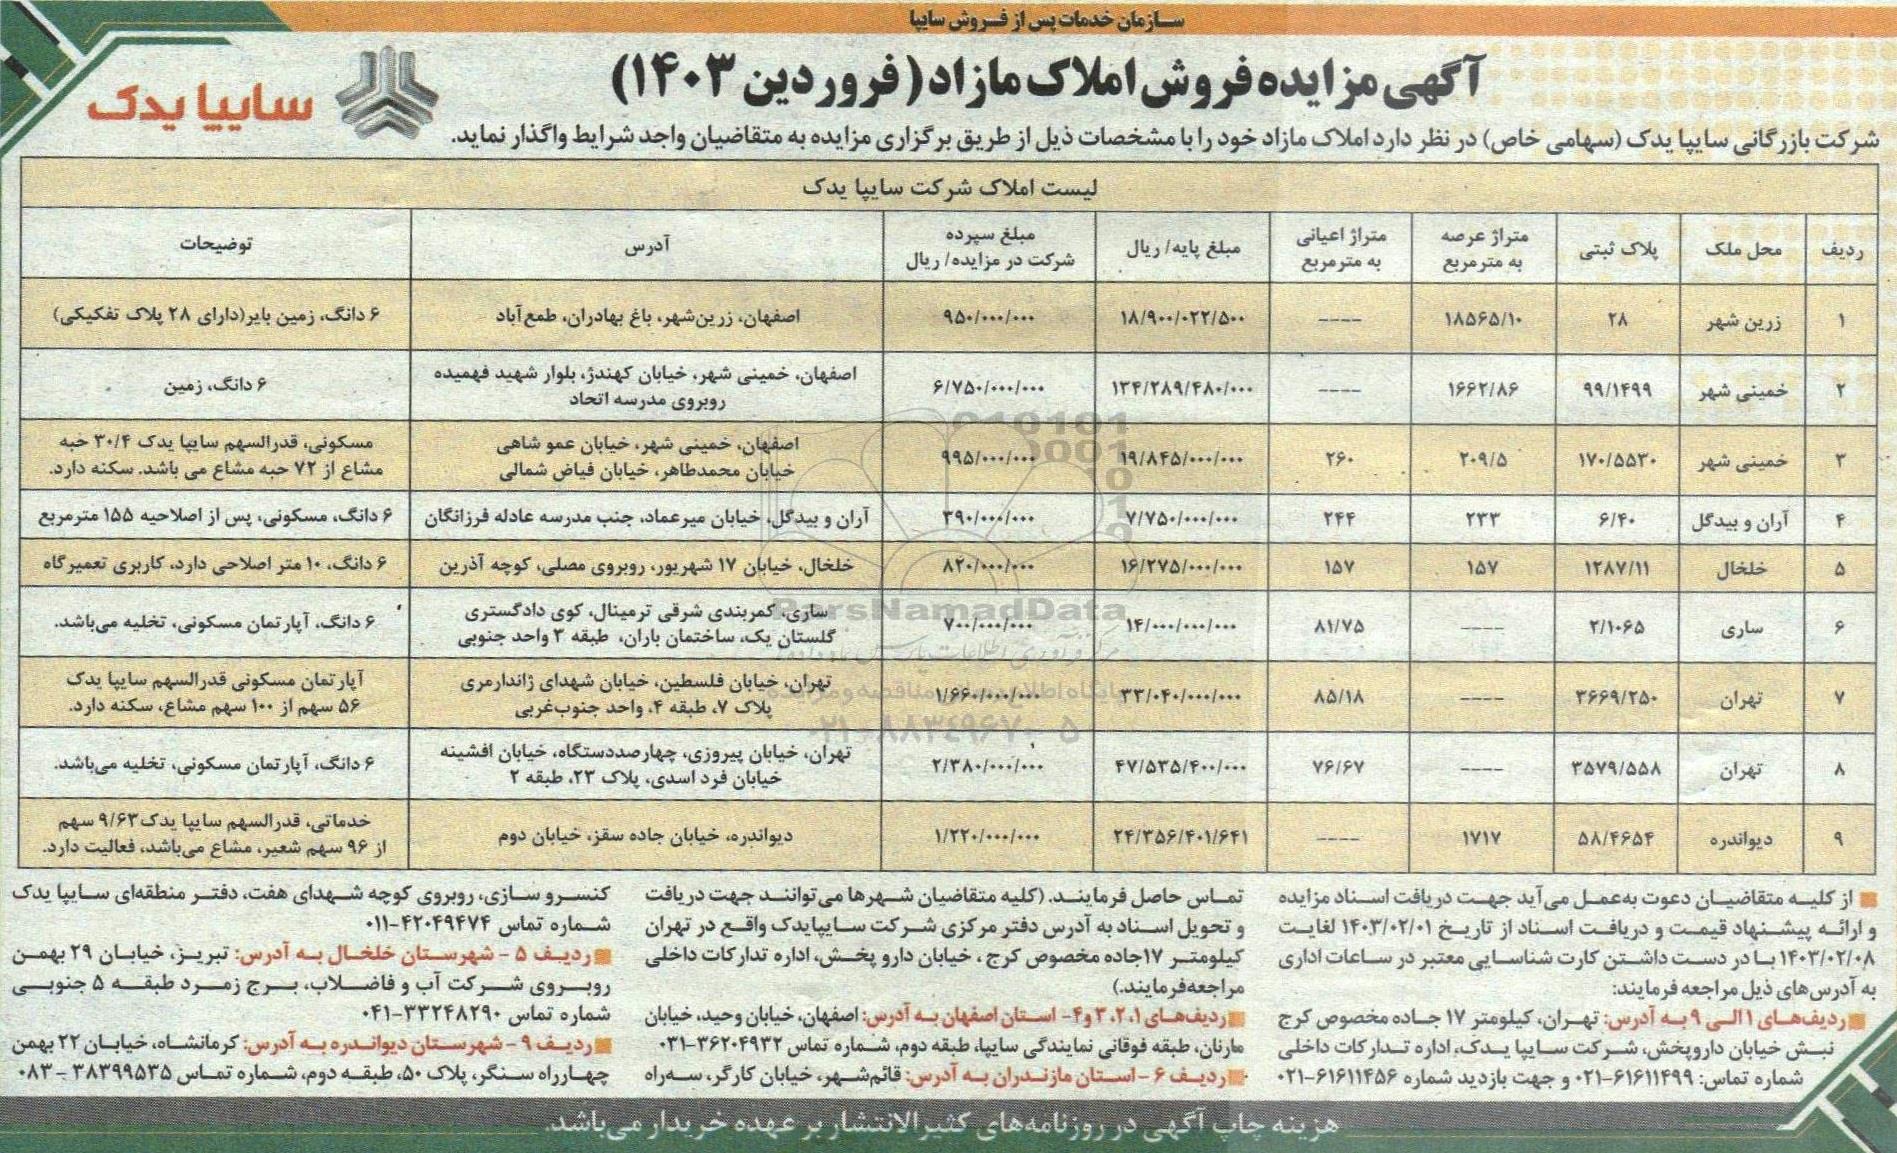 سازمان خدمات پس از فروش سایپا
آگهی مزایده فروش املاک مازاد (فروردین ۱۴۰۳)
سایپا یدک
شرکت بازرگانی سایپا یدک (سهامی خاص) در نظر دارد املاک مازاد خود را با مشخصات ذیل از طریق برگزاری مزایده به متقاضیان واجد شرایط واگذار نماید.
لیست املاک شرکت سایپا یدک
ردیف | محل ملک | پلاک ثبتی | متراژ عرصه به مترمربع | متراژ اعیانی به مترمربع | مبلغ پایه/ ریال | مبلغ سپرده شرکت در مزایده/ ریال | آدرس | توضیحات
۱ | زرین شهر | ۲۸ | ۱۸۵۶۵/۱۰ | ---- | ۱۸/۹۰۰/۰۲۲/۵۰۰ | ۹۵۰/۰۰۰/۰۰۰ | اصفهان، زرین‌شهر، باغ بهادران، طمع‌آباد | ۶ دانگ، زمین بایر(دارای ۲۸ پلاک تفکیکی)
۲ | خمینی شهر | ۹۹/۱۴۹۹ | ۱۶۶۲/۸۶ | ---- | ۱۳۴/۲۸۹/۴۸۰/۰۰۰ | ۶/۷۵۰/۰۰۰/۰۰۰ | اصفهان، خمینی شهر، خیابان کهندژ، بلوار شهید فهمیده روبروی مدرسه اتحاد | ۶ دانگ، زمین
۳ | خمینی شهر | ۱۷۰/۵۵۳۰ | ۲۰۹/۵ | ۲۶۰ | ۱۹/۸۴۵/۰۰۰/۰۰۰ | ۹۹۵/۰۰۰/۰۰۰ | اصفهان، خمینی شهر، خیابان عمو شاهی خیابان محمدطاهر، خیابان فیاض شمالی | مسکونی، قدرالسهم سایپا یدک ۳۰/۴ حبه مشاع از ۷۲ حبه مشاع می باشد. سکنه دارد.
۴ | آران و بیدگل | ۶/۴۰ | ۲۳۳ | ۲۴۴ | ۷/۷۵۰/۰۰۰/۰۰۰ | ۳۹۰/۰۰۰/۰۰۰ | آران و بیدگل، خیابان میرعماد، جنب مدرسه عادله فرزانگان | ۶ دانگ، مسکونی، پس از اصلاحیه ۱۵۵ مترمربع
۵ | خلخال | ۱۲۸۷/۱۱ | ۱۵۷ | ۱۵۷ | ۱۶/۲۷۵/۰۰۰/۰۰۰ | ۸۲۰/۰۰۰/۰۰۰ | خلخال، خیابان ۱۷ شهریور، روبروی مصلی، کوچه آذرین | ۶ دانگ، ۱۰ متر اصلاحی دارد، کاربری تعمیرگاه
۶ | ساری | ۲/۱۰۶۵ | ---- | ۸۱/۷۵ | ۱۴/۰۰۰/۰۰۰/۰۰۰ | ۷۰۰/۰۰۰/۰۰۰ | ساری، کمربندی شرقی ترمینال، کوی دادگستری گلستان یک، ساختمان باران، طبقه ۳ واحد جنوبی | ۶ دانگ، آپارتمان مسکونی، تخلیه می‌باشد.
۷ | تهران | ۳۶۶۹/۲۵۰ | ---- | ۸۵/۱۸ | ۳۳/۰۴۰/۰۰۰/۰۰۰ | ۱/۶۶۰/۰۰۰/۰۰۰ | تهران، خیابان فلسطین، خیابان شهدای ژاندارمری پلاک ۷، طبقه ۴، واحد جنوب‌غربی | آپارتمان مسکونی قدرالسهم سایپا یدک ۵۶ سهم از ۱۰۰ سهم مشاع، سکنه دارد.
۸ | تهران | ۳۵۷۹/۵۵۸ | ---- | ۷۶/۶۷ | ۴۷/۵۳۵/۴۰۰/۰۰۰ | ۲/۳۸۰/۰۰۰/۰۰۰ | تهران، خیابان پیروزی، چهارصددستگاه، خیابان افشینه خیابان فرد اسدی، پلاک ۲۳، طبقه ۲ | ۶ دانگ، آپارتمان مسکونی، تخلیه می‌باشد.
۹ | دیواندره | ۵۸/۴۶۵۴ | ۱۷۱۷ | ---- | ۲۴/۳۵۶/۴۰۱/۶۴۱ | ۱/۲۲۰/۰۰۰/۰۰۰ | دیواندره، خیابان جاده سقز، خیابان دوم | خدماتی، قدرالسهم سایپا یدک۹/۶۳ سهم از ۹۶ سهم شعیر، مشاع می‌باشد، فعالیت دارد.
از کلیه متقاضیان دعوت به‌عمل می‌آید جهت دریافت اسناد مزایده
و ارائه پیشنهاد قیمت و دریافت اسناد از تاریخ ۱۴۰۳/۰۲/۰۱ لغایت
۱۴۰۳/۰۲/۰۸ با در دست داشتن کارت شناسایی معتبر در ساعات اداری
به آدرس‌های ذیل مراجعه فرمایند:
ردیف‌های ۱ الی ۹ به آدرس: تهران، کیلومتر ۱۷ جاده مخصوص کرج
نبش خیابان داروپخش، شرکت سایپا یدک، اداره تدارکات داخلی
شماره تماس: ۶۱۶۱۱۴۹۹-۰۲۱ و جهت بازدید شماره ۶۱۶۱۱۴۵۶-۰۲۱
تماس حاصل فرمایند. (کلیه متقاضیان شهرها می‌توانند جهت دریافت
و تحویل اسناد به آدرس دفتر مرکزی شرکت سایپایدک واقع در تهران
کیلومتر ۱۷جاده مخصوص کرج ، خیابان دارو پخش، اداره تدارکات داخلی
مراجعه‌فرمایند.)
ردیف‌های ۱، ۲، ۳ و۴- استان اصفهان به آدرس: اصفهان، خیابان وحید، خیابان
مارنان، طبقه فوقانی نمایندگی سایپا، طبقه دوم، شماره تماس ۳۶۲۰۴۹۳۲-۰۳۱
ردیف ۶ - استان مازندران به آدرس: قائم‌شهر، خیابان کارگر، سه‌راه
کنسرو سازی، روبروی کوچه شهدای هفت، دفتر منطقه‌ای سایپا یدک
شماره تماس ۴۲۰۴۹۴۷۴-۰۱۱
ردیف ۵ - شهرستان خلخال به آدرس: تبریز، خیابان ۲۹ بهمن
روبروی شرکت آب و فاضلاب، برج زمرد طبقه ۵ جنوبی
شماره تماس ۳۳۲۴۸۲۹۰-۰۴۱
ردیف ۹ - شهرستان دیواندره به آدرس: کرمانشاه، خیابان ۲۲ بهمن
چهارراه سنگر، پلاک ۵۰، طبقه دوم، شماره تماس ۳۸۳۹۹۵۳۵ - ۰۸۳
هزینه چاپ آگهی در روزنامه‌های کثیرالانتشار بر عهده خریدار می‌باشد.
ParsNamadData
۰۲۱-۸۸۳۴۹۶۷۰-۵